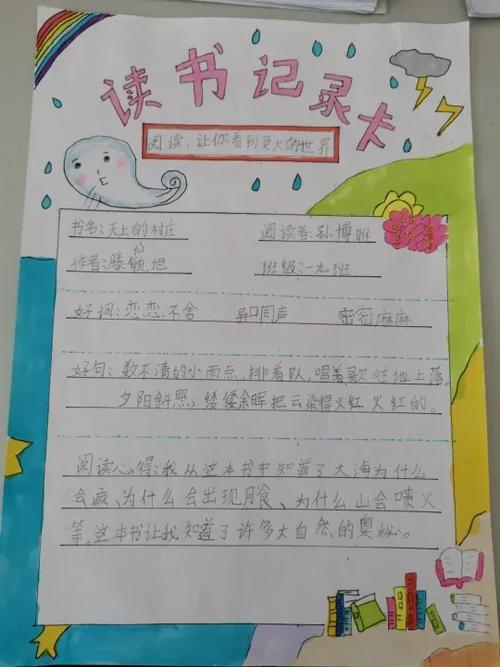 读书记录卡
阅读，让你看到更大的世界
书名：天上的村庄 阅读者：孙博雅
作者：滕毓旭 班级：一九班
好词：恋恋不舍 异口同声 密密麻麻
好句：数不清的小雨点，排着队，唱着歌往地上落。
夕阳斜照，缕缕余晖把云染得火红火红的。
阅读心得：我从这本书中知道了大海为什么
会疯、为什么会出现月食、为什么山会喷火
等。这本书让我知道了许多大自然的奥秘。